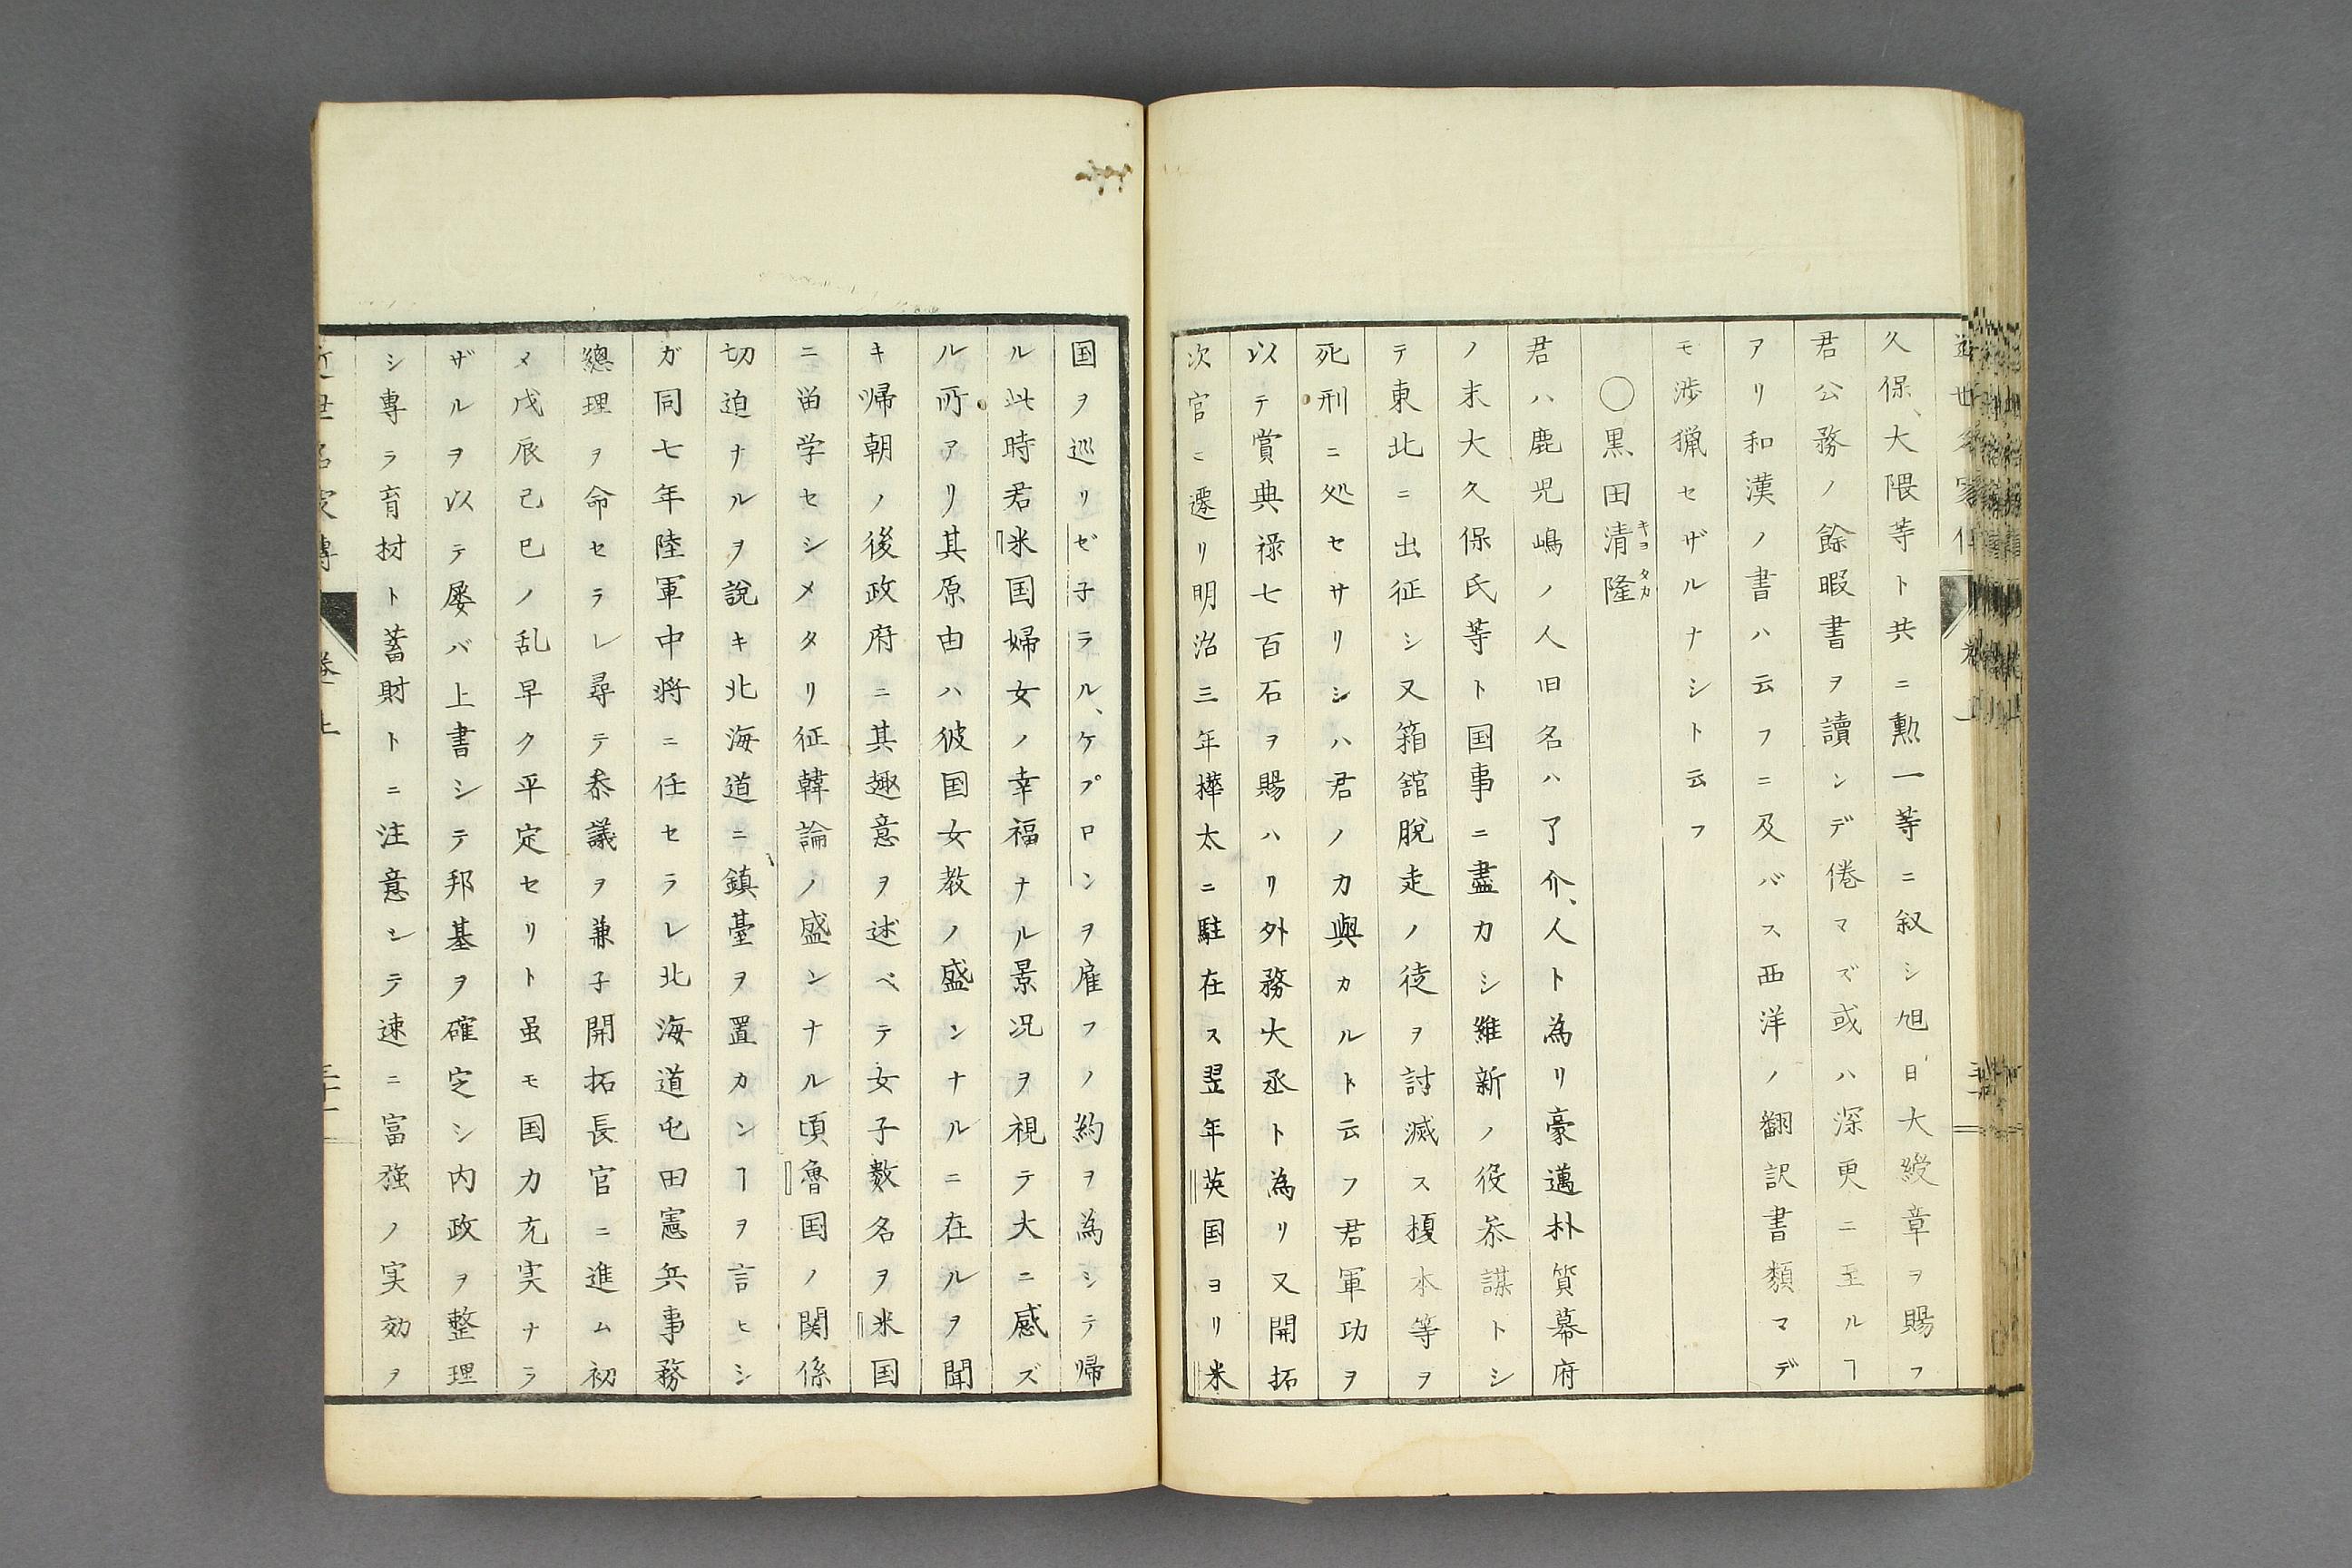 久保、大隈等ト共ニ勲一等ニ叙シ旭日大綬章ヲ賜フ
君公務ノ餘暇書ヲ讀ンデ倦マズ或ハ深更ニ至ルヿ
アリ和漢ノ書ハ云フニ及バス西洋ノ翻訳書類マデ
モ渉猟セザルナシト云フ
〇黒田清隆
キヨタカ
君ハ鹿児嶋ノ人旧名ハ了介、人ト為リ豪邁朴質幕府
ノ末大久保氏等ト国事ニ盡力シ維新ノ役叅謀トシ
テ東北ニ出征シ又箱舘脱走ノ徒ヲ討滅ス榎本等ヲ
死刑ニ処セサリシハ君ノ力與カルト云フ君軍功ヲ
以テ賞典禄七百石ヲ賜ハリ外務大丞ト為リ又開拓
次官ニ遷リ明治三年樺太ニ駐在ス翌年英国ヨリ米
国ヲ巡リゼ子ラル、ケプロンヲ雇フノ約ヲ為シテ帰
ル此時君米国婦女ノ幸福ナル景況ヲ視テ大ニ感ズ
ル所アリ其原由ハ彼国女教ノ盛ンナルニ在ルヲ聞
キ帰朝ノ後政府ニ其趣意ヲ述ベテ女子数名ヲ米国
ニ畄学セシメタリ征韓論ノ盛ンナル頃魯国ノ関係
切迫ナルヲ説キ北海道ニ鎮臺ヲ置カンヿヲ言ヒシ
ガ同七年陸軍中将ニ任セラレ北海道屯田憲兵事務
總理ヲ命セラレ尋テ叅議ヲ兼子開拓長官ニ進ム初
メ戊辰己巳ノ乱早ク平定セリト虽モ国力充実ナラ
ザルヲ以テ屡バ上書シテ邦基ヲ確定シ内政ヲ整理
シ専ラ育材ト蓄財トニ注意シテ速ニ富強ノ実効ヲ
近世名家傳
卷上